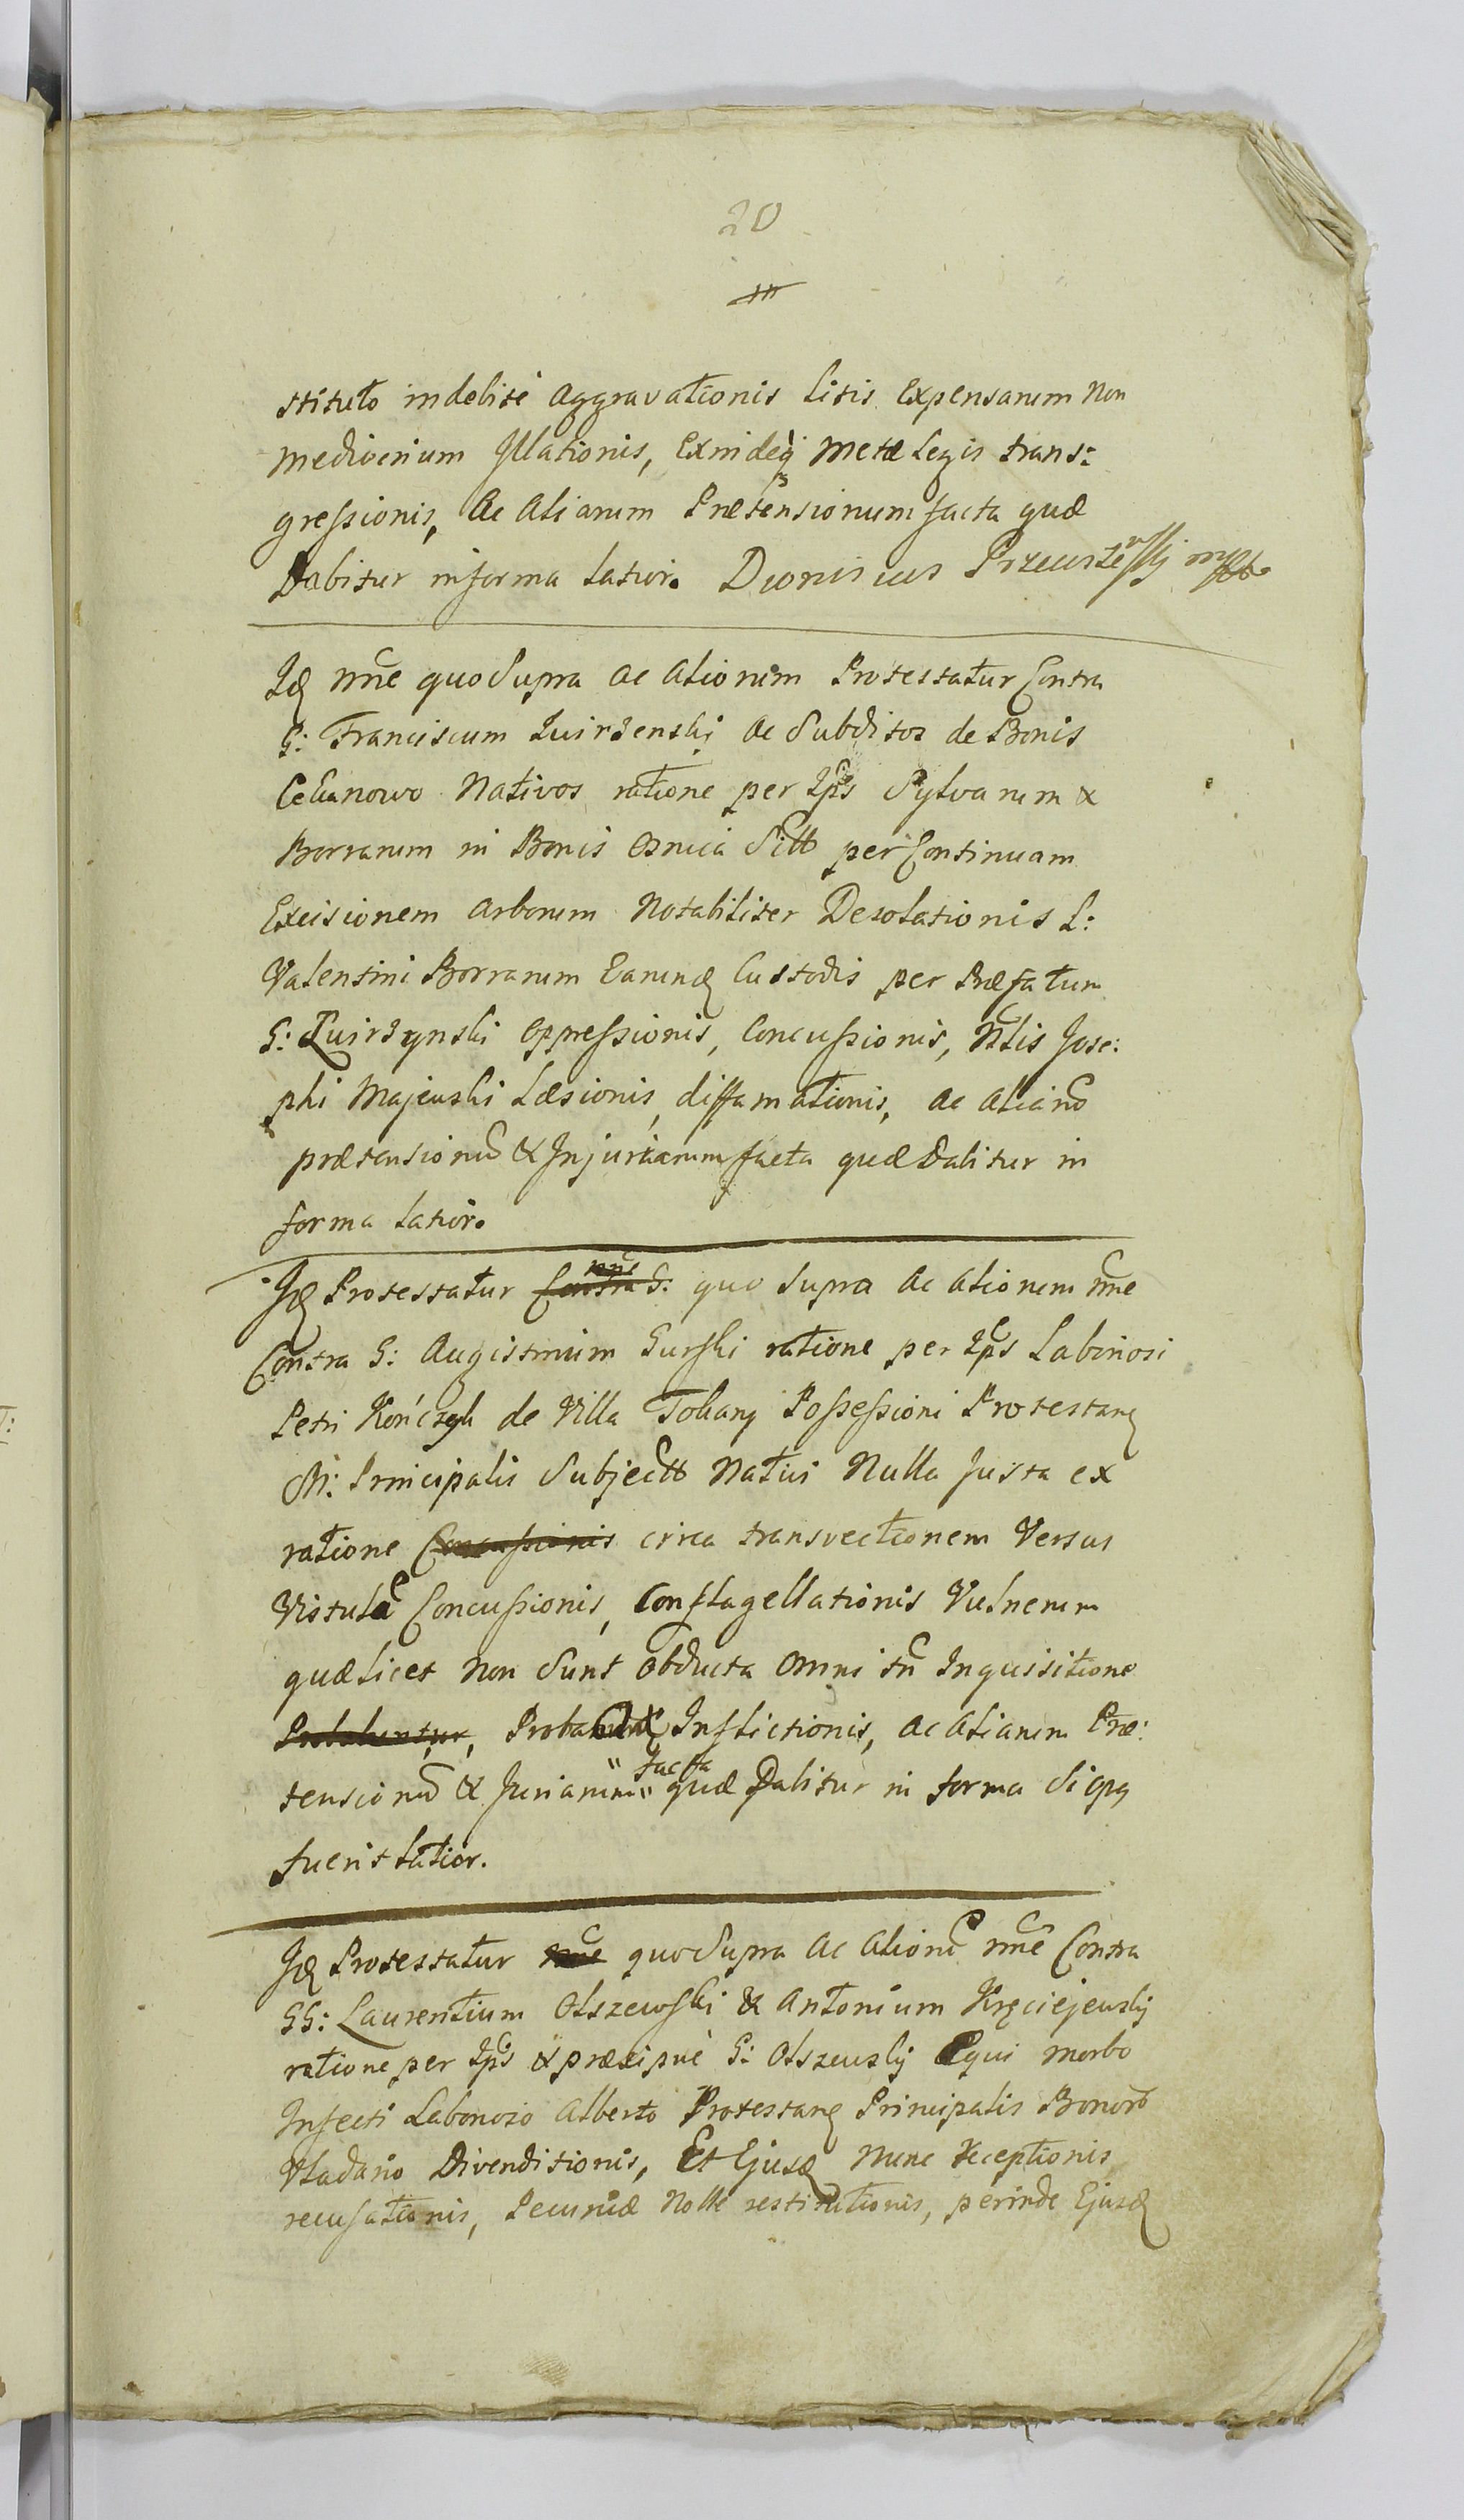 20
stituto indebite Aggravationis Litis Expensarum Non
mediocrium Illationis, Exindeq̀ Metæ Legis trans:
gressionis, Ac Aliarum Prætensionum facta quæ
Dabitur in forma Latior. Dionisius mppa
Id nne quo Supra Ac Ationem Protestatur Contra
G: Franciscum Kuirzenski Ac Subditos de Bonis
Celianowo Nativos ratione per Ips Sylvarum &
Borrarum in Bonis Osnica Sitt per Continuam
Excisionem Arborum Notabiliter Desolationis L:
Valentini Borrarum Earund Custodis per Præfatum
G: Kuirzynski Oppressionis, Concussionis, Nblis Jose:
phi Majewski Læsionis, diffamationis, Ac Aliarũ
prætensionũ & Injuriarum facta quæ Dabitur in
forma Latior.
Id Protestatur Contra G: nne quo Supra Ac Ationem nne
Contra G: Augistinum Gurski ratione per Ips Laboriosi
Petri Kończyk de Villa Tokary Possessioni Protestang
M: Principalis Subjectt Nativi Nulla Justa ex
ratione Concussionis circa transvectionem Versus
Vistulã Concussionis, Conflagellationis Vulnerum
quæ Licet Non Sunt Obducta Omni tñ Inquisitione
Probabuntur, Inflictionis, Ac Aliarum Præ:
tensionũ & Juriarum " facta " quæ Dabitur in forma Si opg
fuerit Latior.
Id Protestatur nne quo Supra Ac Ationẽ nne Contra
GG: Laurentium Olszewski & Antonium Kręciejewskj
ratione per Ips & præcipuè G: Olszewskj Equi morbo
Infecti Laborioso Alberto Protestang Principalis Bonorũ
Divenditionis, Et Ejusd Nunc receptionis
recusationis, Pecuniæ Nolle restitutionis, perinde Ejusd